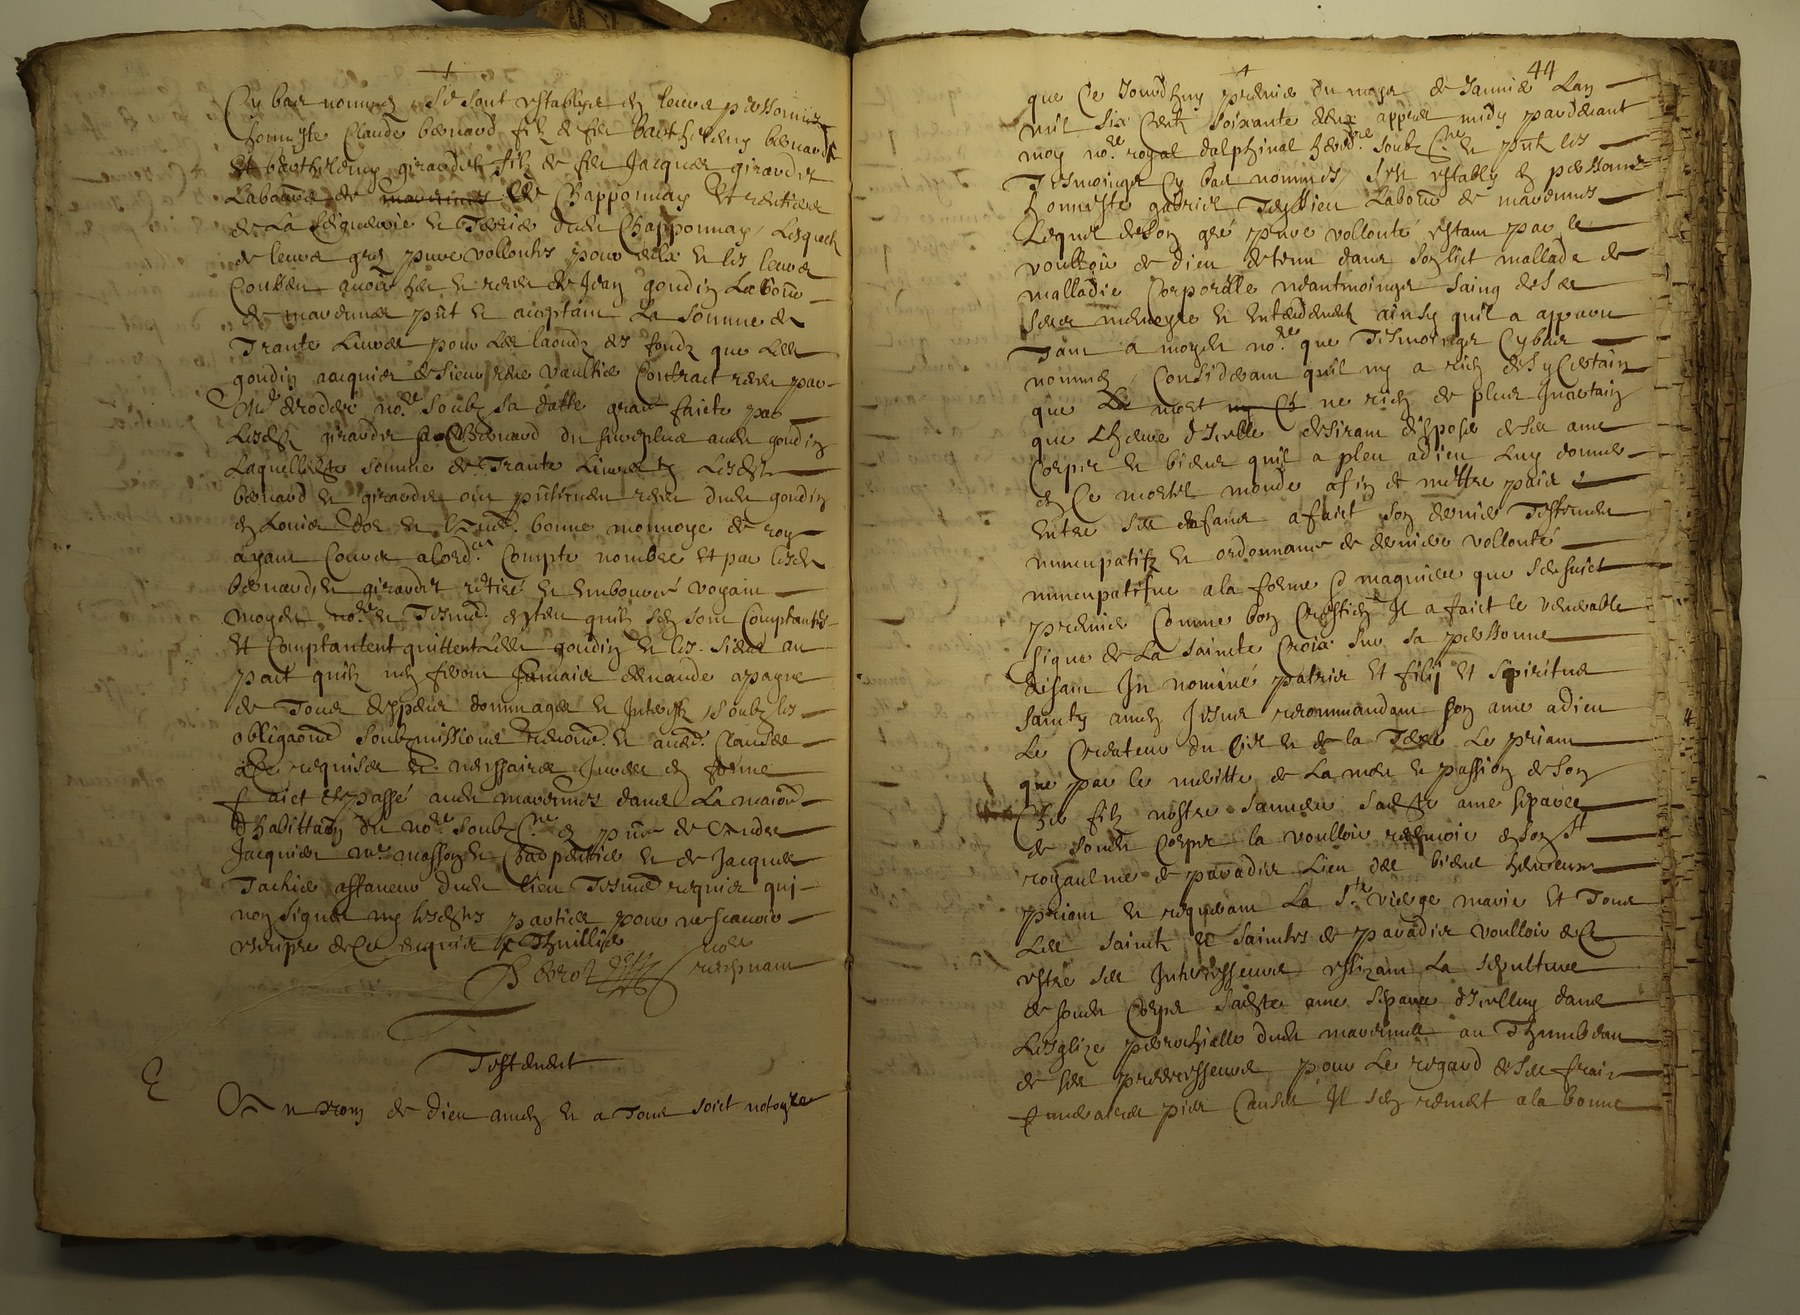 Cy bas nommés, se sont establys en leurs personnes
honneste Claude bernard filz de feu barthelemy bernard
Et barthelemy girardet filz de feu Jacques girardet
Laboure de Chapponnay Et rentiers
de La seigneurie et Terrie dudt Chapponnay Lesquelz
de leurs grez pure vollontes pour eulx et les leurs
Confessent avoir heu et receu de Jean goudin Laboure
de marennes pnt et acceptant La somme de
Trante Livres pour Les laoudz des fondz que Led
goudin acquict de sieur Contract receu par
Me no.re soubz sa datte faicte par
Lesd girardet et Bernard du surplus audt goudin
Laquelle somme de Trante Livres tz Lesdtz
bernard et girardet ont pntement receu dudt goudin
en Louis d'or et bonne monnoye de roy
ayant Cours alord. Compte nombre Et par lesdtz
bernard, et girardet retiré et Embourcé voyant
moydt no.re et Tesmoins desten quilz sen sont Comptantes
Et Comptantent quittent Ledt goudin et les siens au
pact quilz nen feront Jamais demande apayne
de Tous despens dommages et Interestz soubz les
obligaons soubzmissions renons et aud. Clauses
requises et necessaires Jurées en forme
faict et passé audt marennes dans La maison
d'habittaon du no.re soubzne en pnce de
Jacquier me masson et Charpentier et de Jacques
Tachier affaneur dudt Lieu Tesmoins requis qui
non signé ny lesdtes parties pour ne scavoir
escripre de Ce enquis
no.re
recepvant
Testament
Au nom de Dieu amen et a Tous soict notoyre
44
que Ce Jourdhuy premier du moys de Janvier Lan
mil six Centz soixante deux appres midy pardevant
moy no.re royal dalphinal hered.re soubzne et pntz les
Tesmoings Cy bas nommés, sest establý en personne
honneste gabriel Laboure de marennes
Lequel de son gré pure vollonté estant par le
voulloir de dieu detenu dans son lict mallade de
malladie Corporelle neantmoings saing de ses
sens memoyre et Entendement ainsy quil a apparu
Tant a moydt no.re que Tesmoings Cybas
nommés, Considerant quil ny a rien de sy Certain
que La mort ne rien de plus Incertain
que Lheure d'Icelle desirant disposer de ses ame
Corps et biens quil a pleu adieu Luy donner
en Ce mortel monde afin de mettre paix
Entre ses Enfans a faict son dernier Testement
nuncupatifz et ordonnance de derniere vollonté
nuncupatifue a la forme et magniere que sensuict
premier Comme bon Chrestien Il a faict le venerable
signe de La saincte Croix sur sa personne
disant In nominé patris Et filij Et Spiritus
sancty amen Jesus recommandant son ame adieu
Le Createur du Ciel et de la Terre Le priant
que par le meritte de La mort et passion de son
Cher filz nostre sauveur sadte ame separée
de sondt Corps la voulloir recepvoir en son St
royaulme de paradis Lieu des biens heureux
priant et requerant La Ste vierge marie Et Tous
Les saintz et saintes de paradis voulloir de Ce
estre ses Intercesseurs eslizant La sepulture
de sondt Corps sadte ame separée d'Icelluy dans
Lesglize parrochialle dudt marennes au Thumbeau
de ses predecesseurs pour Le regard de ses frais
funeraires pies Causes Il sen remet a la bonne